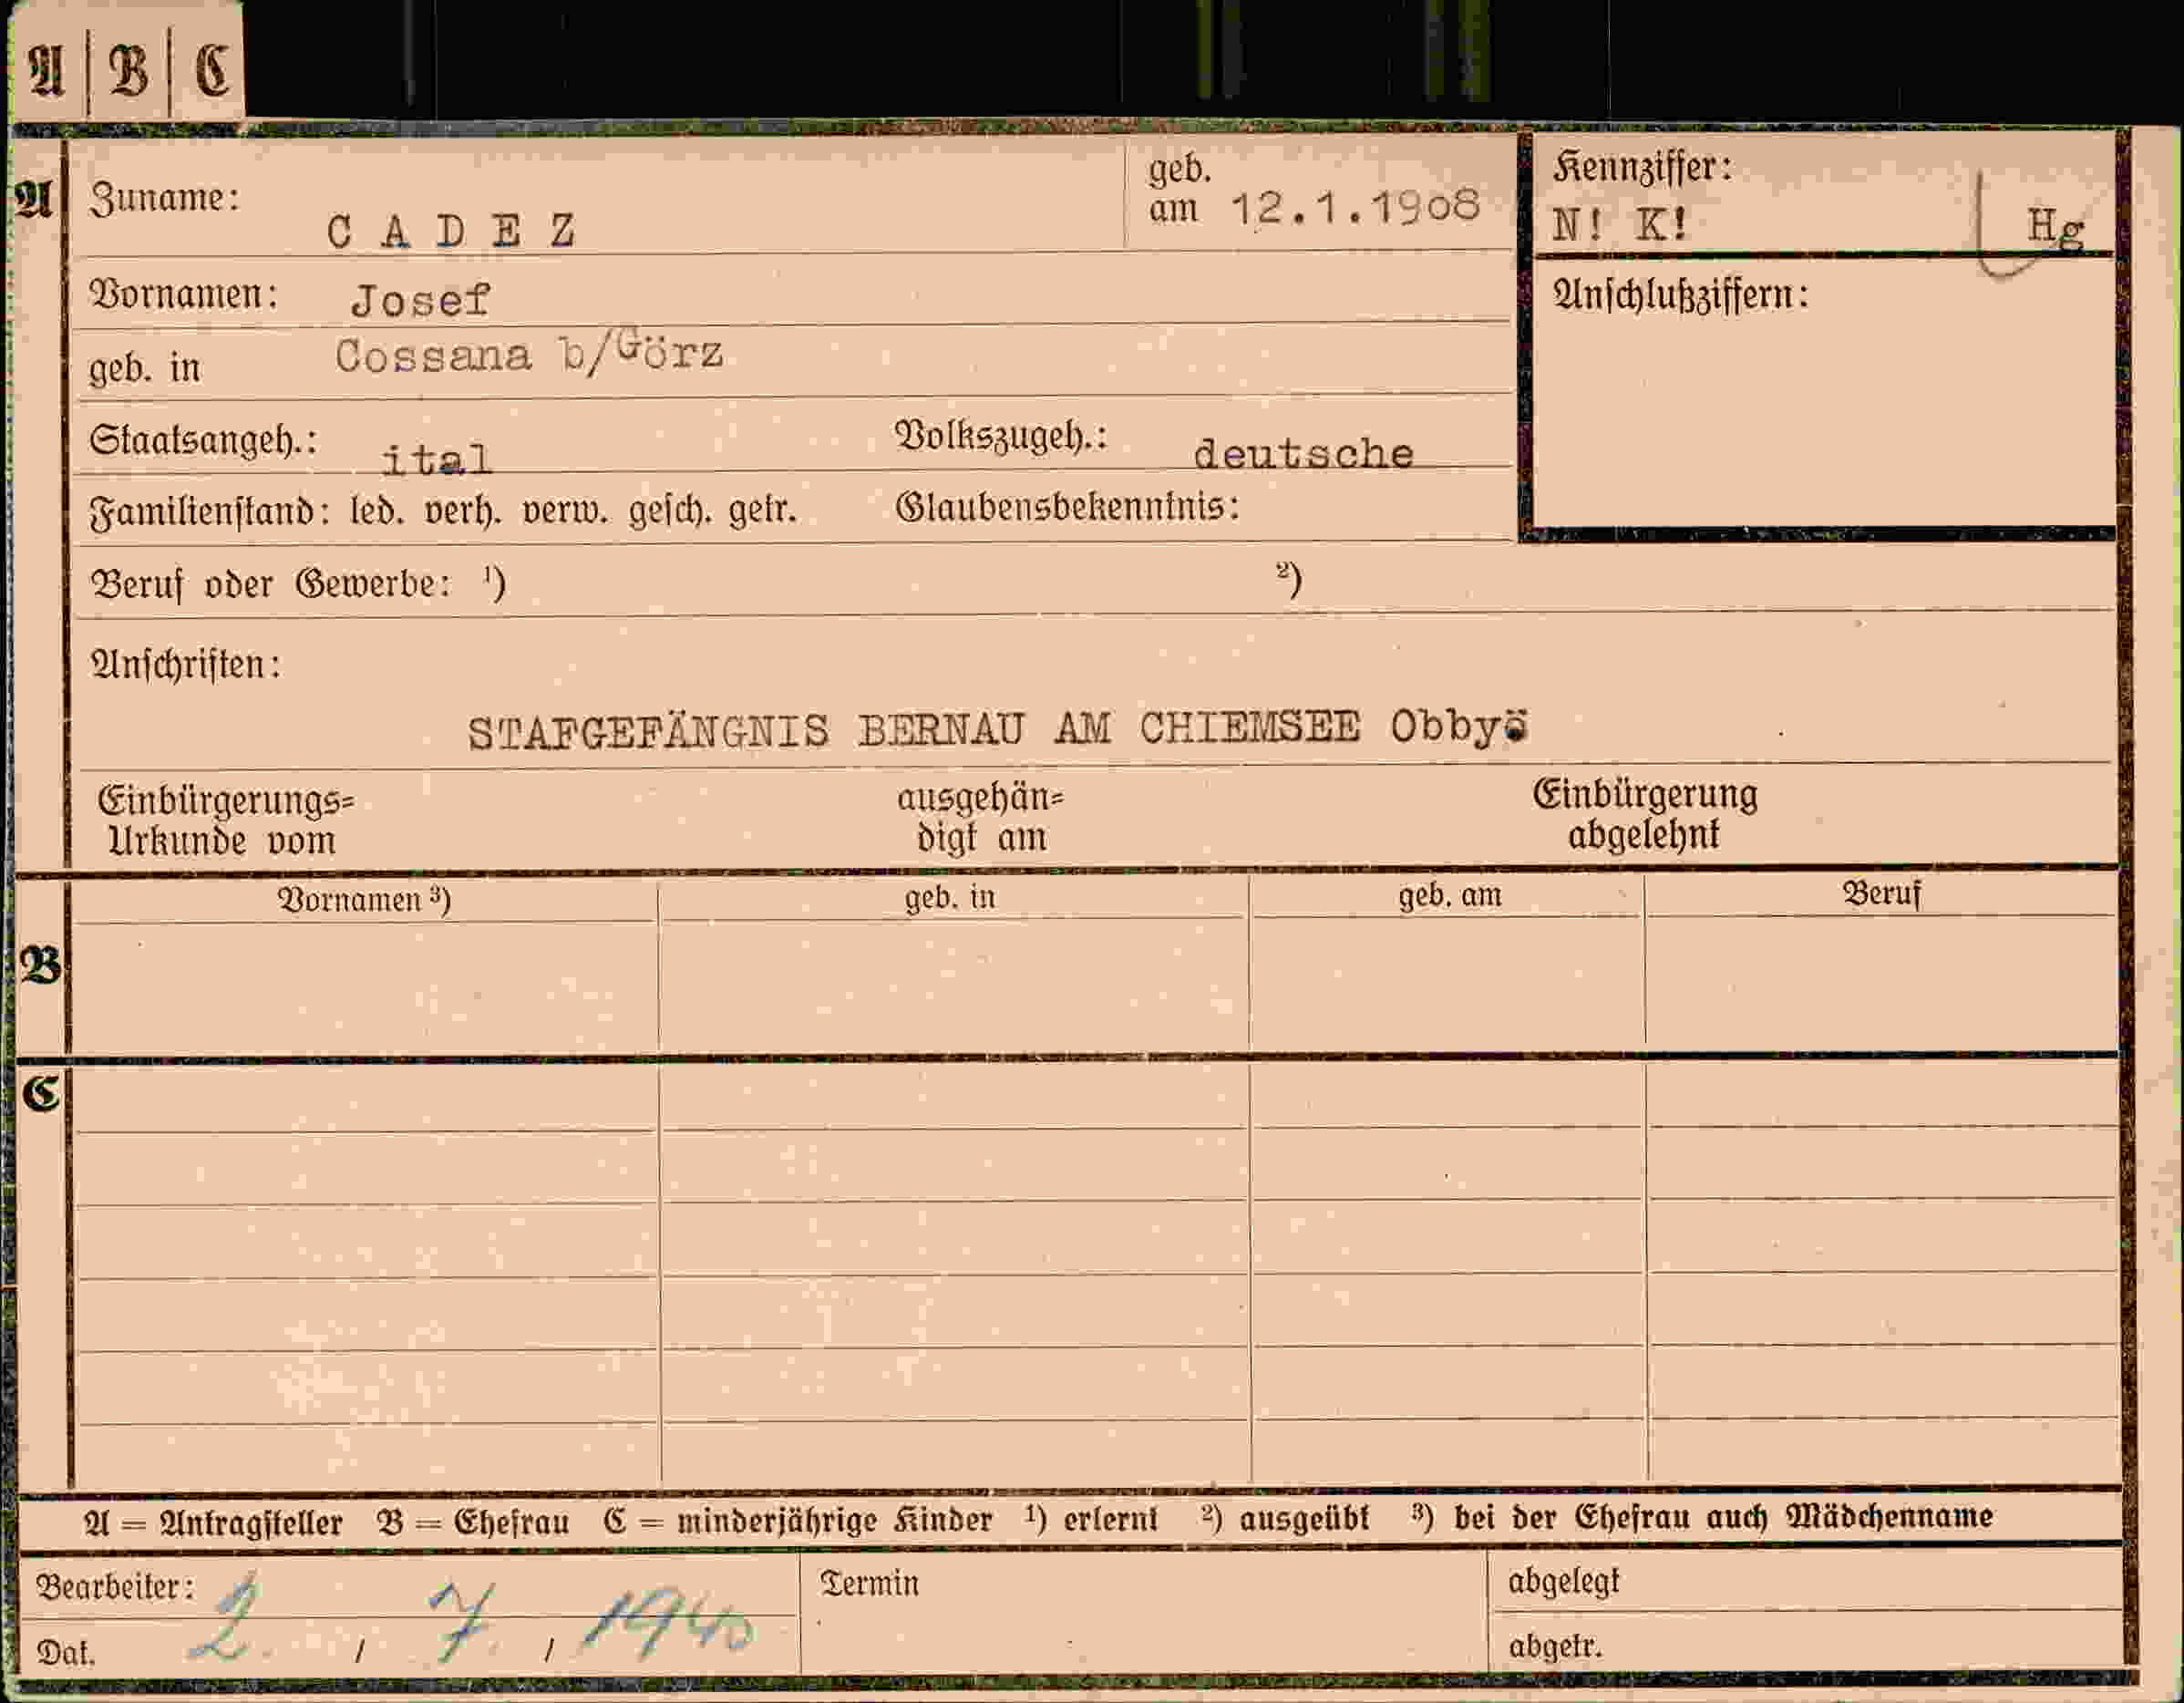 A | B | C
A Zuname: CADEZ geb. am 12.1.1908
Kennziffer:
N! K! Hg
Vornamen: Josef
Anschlußziffern:
geb. in Cossana b/Görz
Staatsangeh.: ital Volkszugeh.: deutsche
Familienstand: led. verh. verw. gesch. getr. Glaubensbekenntnis:
Beruf oder Gewerbe: ¹) ²)
Anschriften:
STAFGEFÄNGNIS BERNAU AM CHIEMSEE Obby
Einbürgerungs= ausgehän= Einbürgerung
Urkunde vom digt am abgelehnt
Vornamen ³) geb. in geb. am Beruf
B
C
A = Antragsteller B = Ehefrau C = minderjährige Kinder ¹) erlernt ²) ausgeübt ³) bei der Ehefrau auch Mädchenname
Bearbeiter: Termin abgelegt
Dat. 2. / 7. / 1940 abgetr.